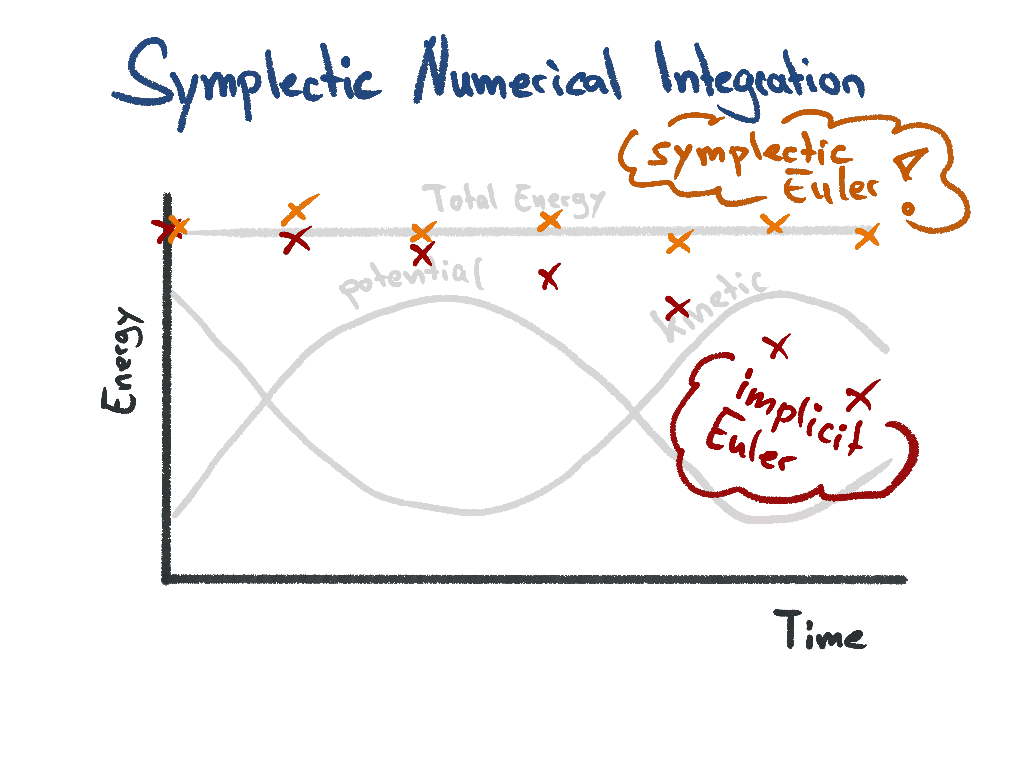 Symplectic Numerical Integration
symplectic
Euler !
Total Energy
potential
kinetic
Energy
implicit
Euler
Time